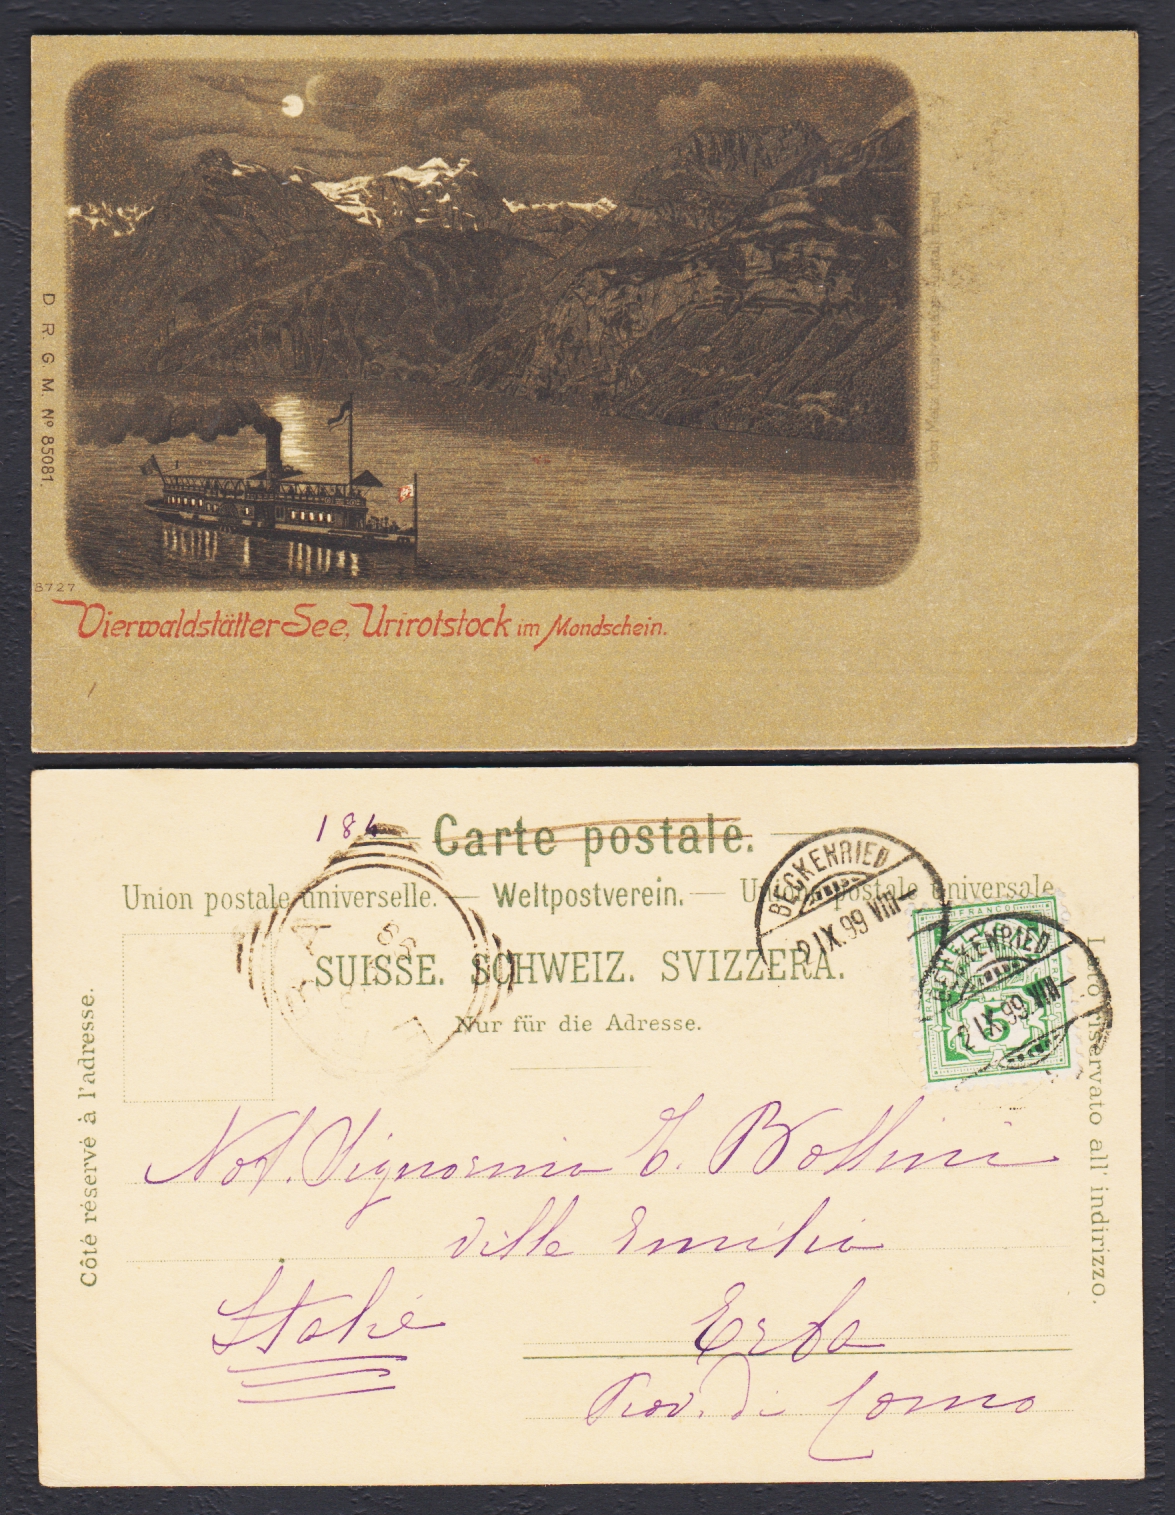 D. R. G. M. Nº 85081.
3727
Vierwaldstätter See, Urirotstock im Mondschein.
184
Carte postale.
Union postale universelle. — Weltpostverein. — Unione postale universale
SUISSE. SCHWEIZ. SVIZZERA.
Nur für die Adresse.
Côté réservé à l'adresse.
Lato riservato all' indirizzo.
BECKENRIED
2 IX. 99 VIII
FRANCO
BECKENRIED
2 IX. 99 VIII
5
Villa Emilia
Italie
Erba
Prov. di Como